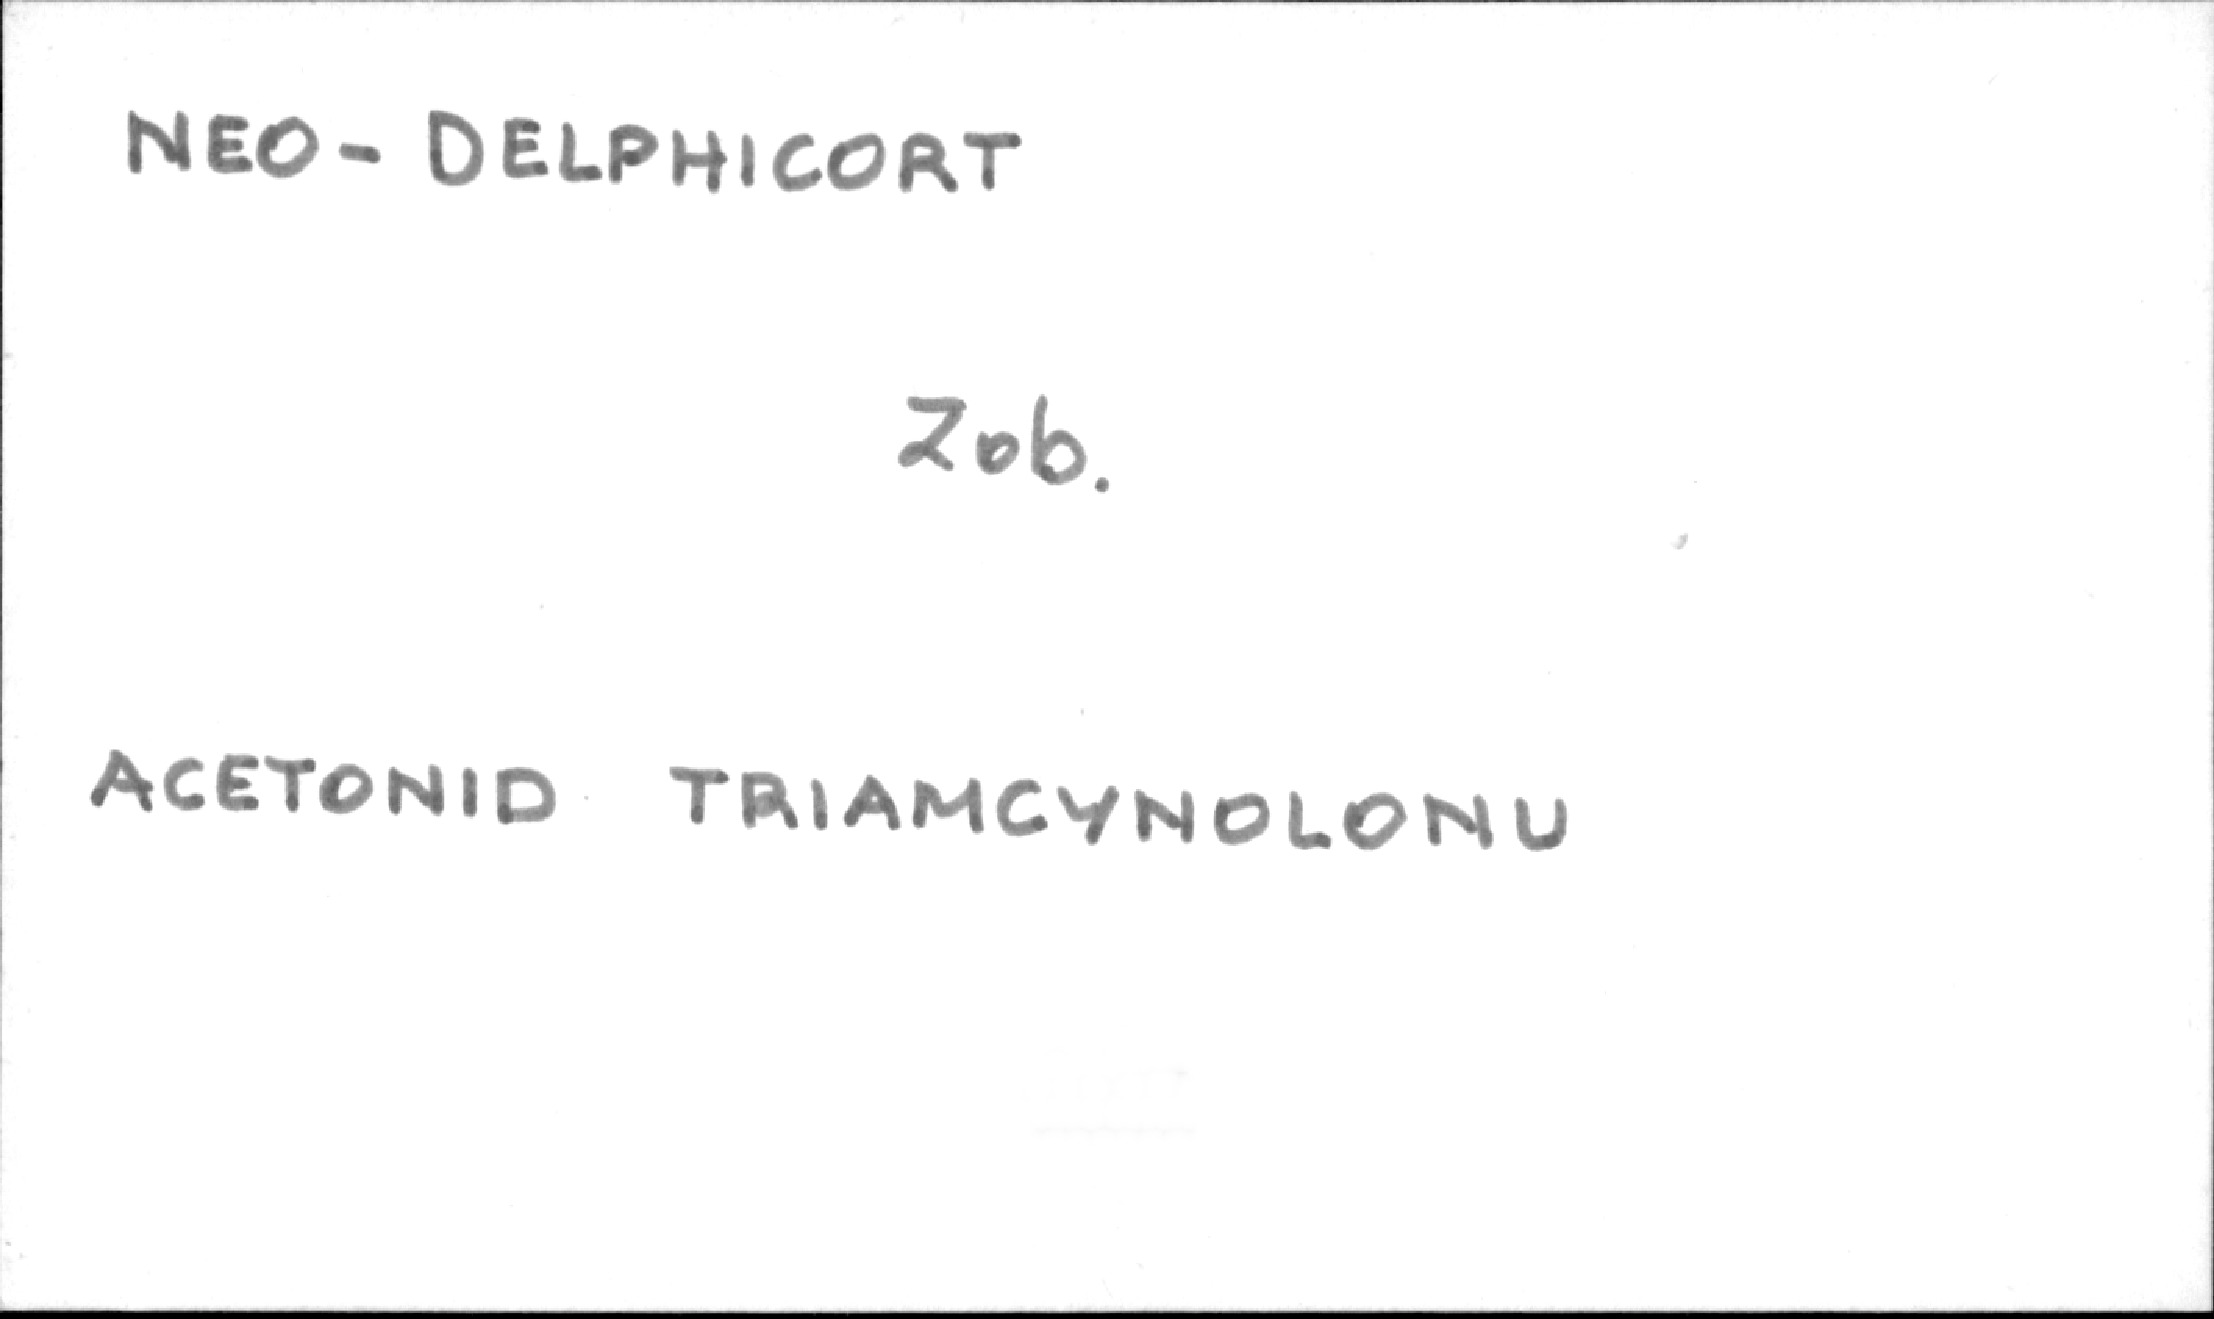 NEO - DELPHICORT
Zob.
ACETONID TRIAMCYNOLONU